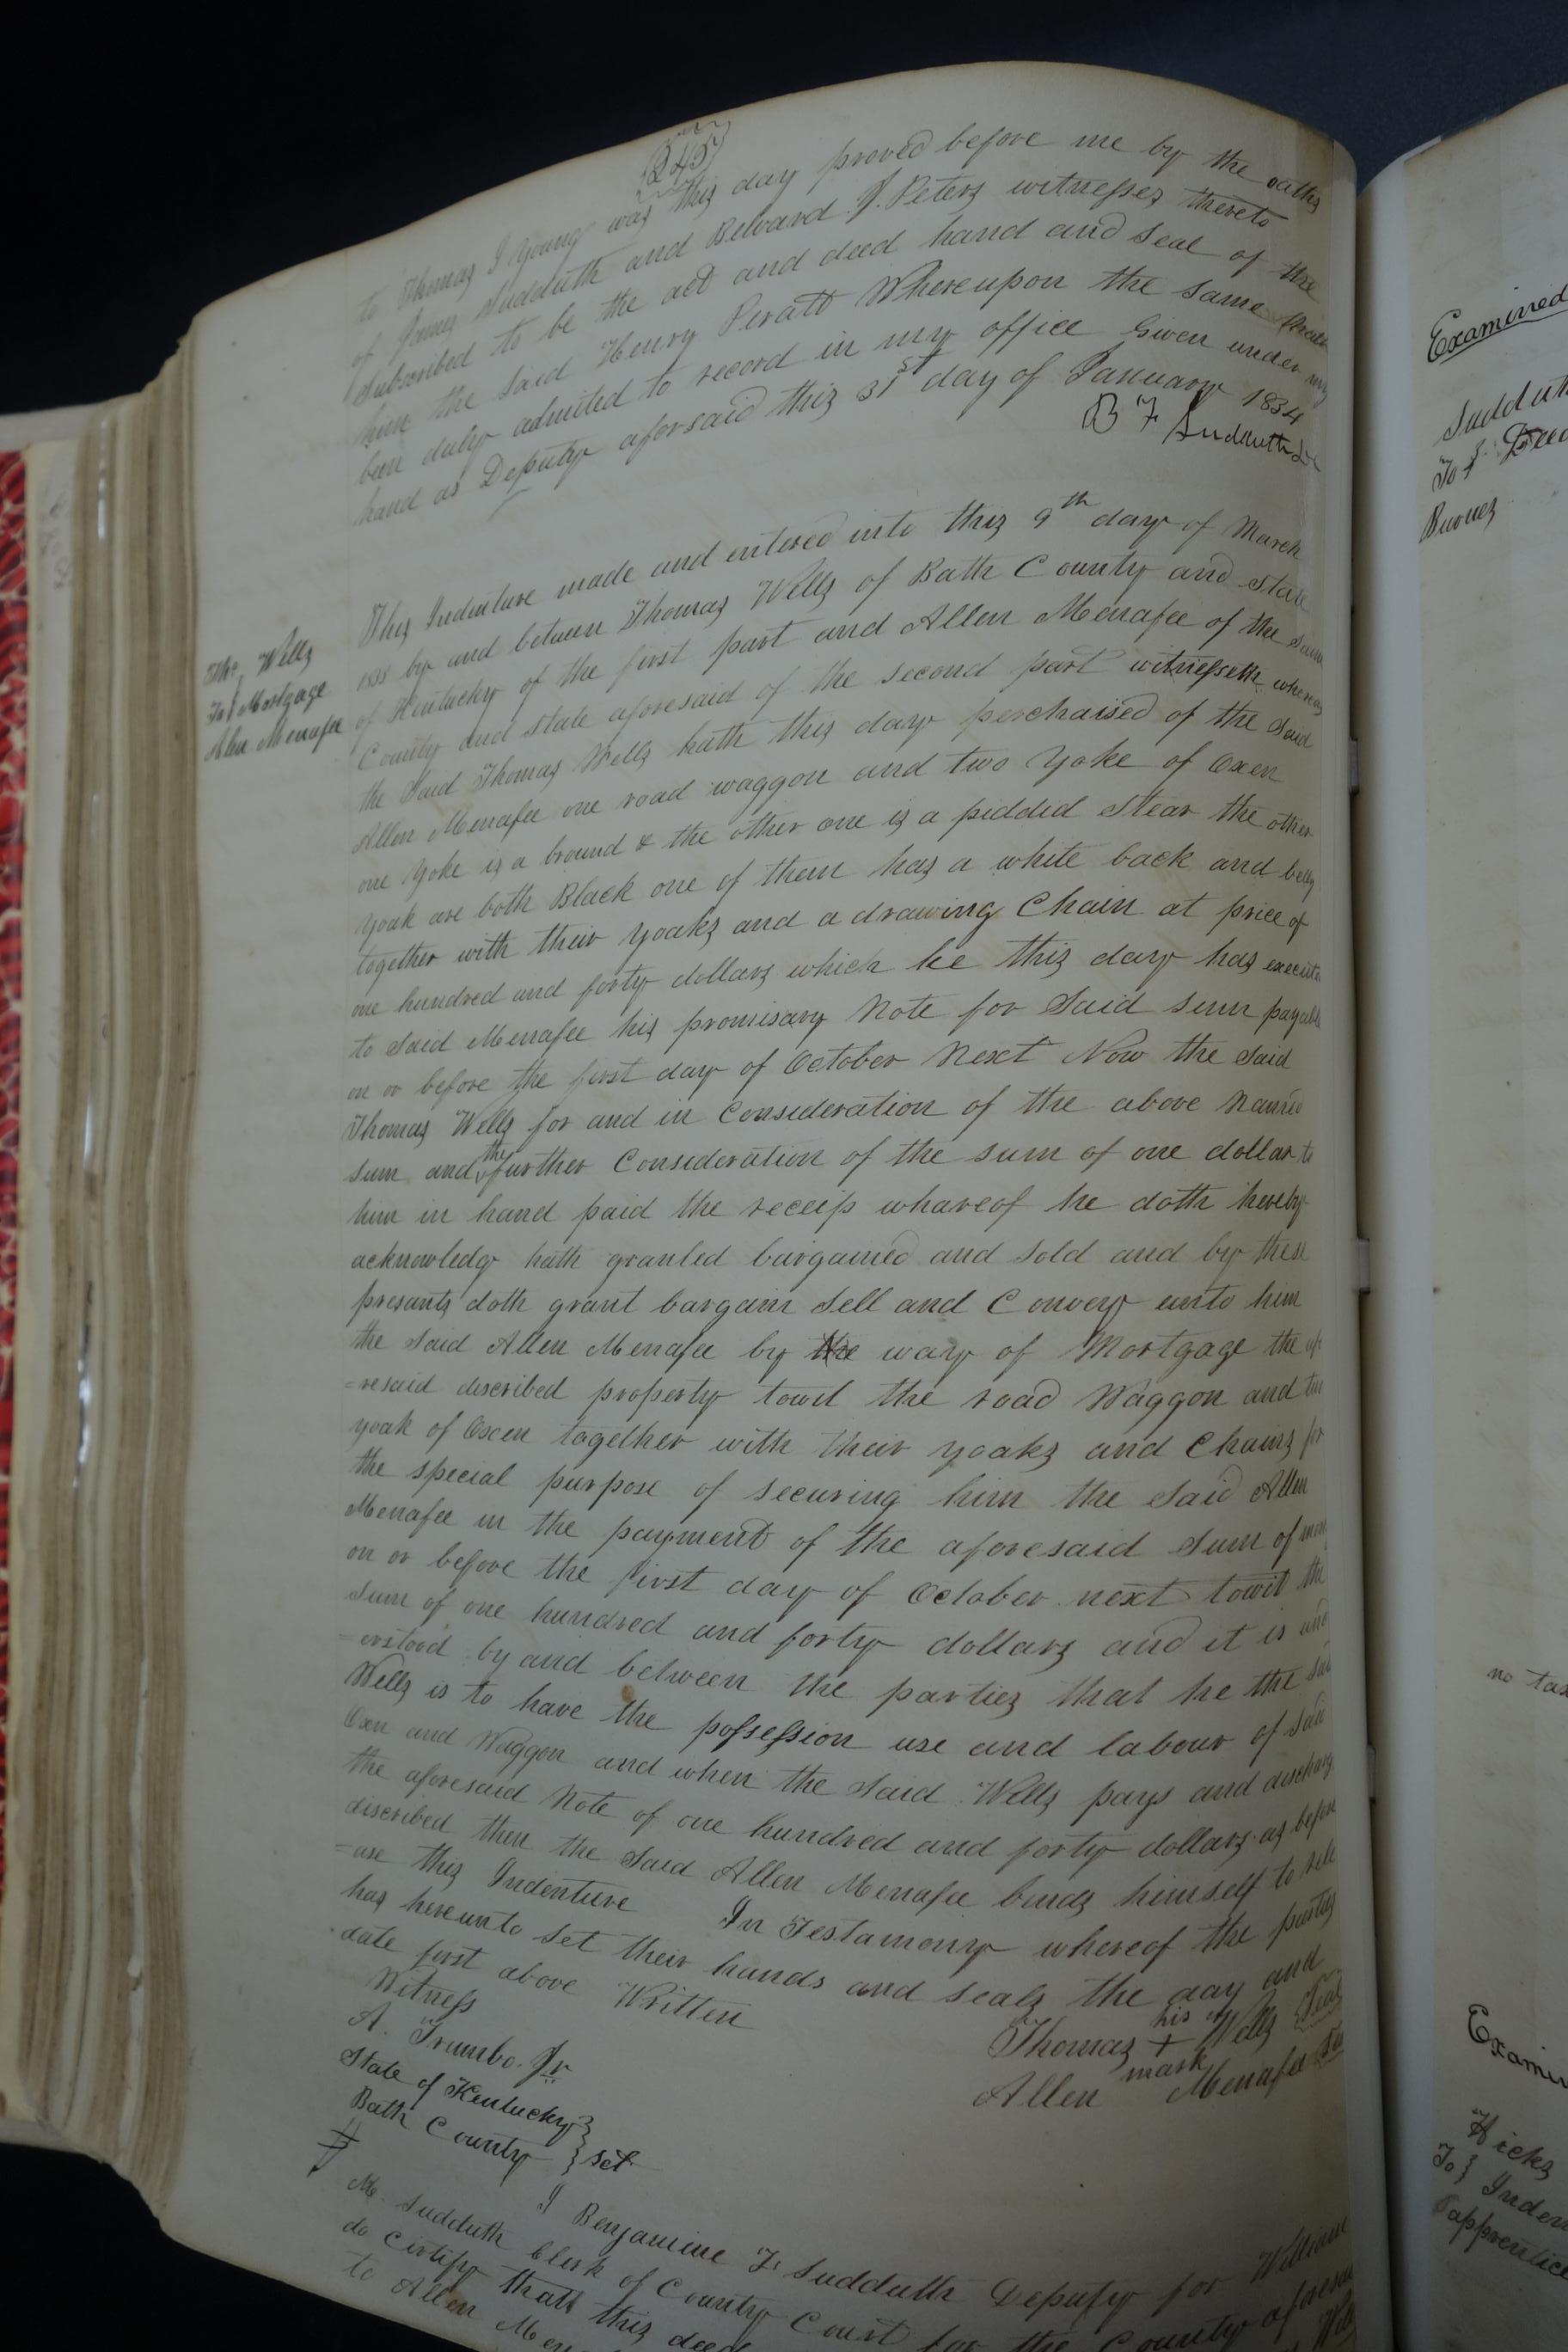 245
to Thomas I Young was this day proved before me by the oaths
of James Sudduth and Belvard J. Peters witnesses thereto
Subscribed to be the act and deed hand and seal of the
him the said Henry Peratt Whereupon the same
been duly admited to record in my office Given under my
hand as Deputy aforsaid this 31st day of January 1834
B F Sudduth
Tho. Wells
To } Mortgage
Allen Menafee
This Indenture made and entered into this 9th day of March
by and between Thomas Wells of Bath County and State
of Kentucky of the first part and Allen Menafee of the Same
County and State aforesaid of the second part witnesseth whereas
the Said Thomas Wells hath this day perchaised of the Said
Allen Menafee one road waggon and two Yoke of Oxen
one Yoke is a bround & the other one is a pidded Stear the other
Yoak are both Black one of them has a white back and belly
together with their Yoaks and a drawing Chain at price of
one hundred and forty dollars which he this day has
to Said Menafee his promisary Note for Said sum payable
on or before the first day of October Next Now the Said
Thomas Wells for and in Consideration of the above Named
sum and the further Consideration of the sum of one dollar to
him in hand paid the receip whareof he doth hereby
acknowledg hath granted bargained and sold and by these
presants doth grant bargain Sell and Convey unto him
the Said Allen Menafee by the way of Mortgage the
=resaid discribed property towit the road Waggon and
yoak of Oxen together with their yoaks and Chains for
the special purpose of securing him the Said Allen
Menafee in the payment of the aforesaid Sum of
on or before the first day of October next towit the
Sum of one hundred and forty dollars and it is und
=erstood by and between the parties that he the said
Wells is to have the possession use and labour of Said
Oxen and Waggon and when the Said Wells pays and discharg
the aforesaid Note of one hundred and forty dollars as before
discribed then the Said Allen Menafee binds himself to rele
=ase this Indenture In Testamony whereof the parties
has hereunto set their hands and seals the day and
date first above Written
Witness
A. Trumbo. Jr
Thomas his + mark Wells Seal
Allen Menafee
State of Kentucky }
Bath County } Sct
I Benjamine F. Sudduth Deputy for William
M. Sudduth Clerk of County Court for the County
do Certify that this deed
to Allen
Examined
Sudduth
To }
Burnes
no tax
Hicks
To }